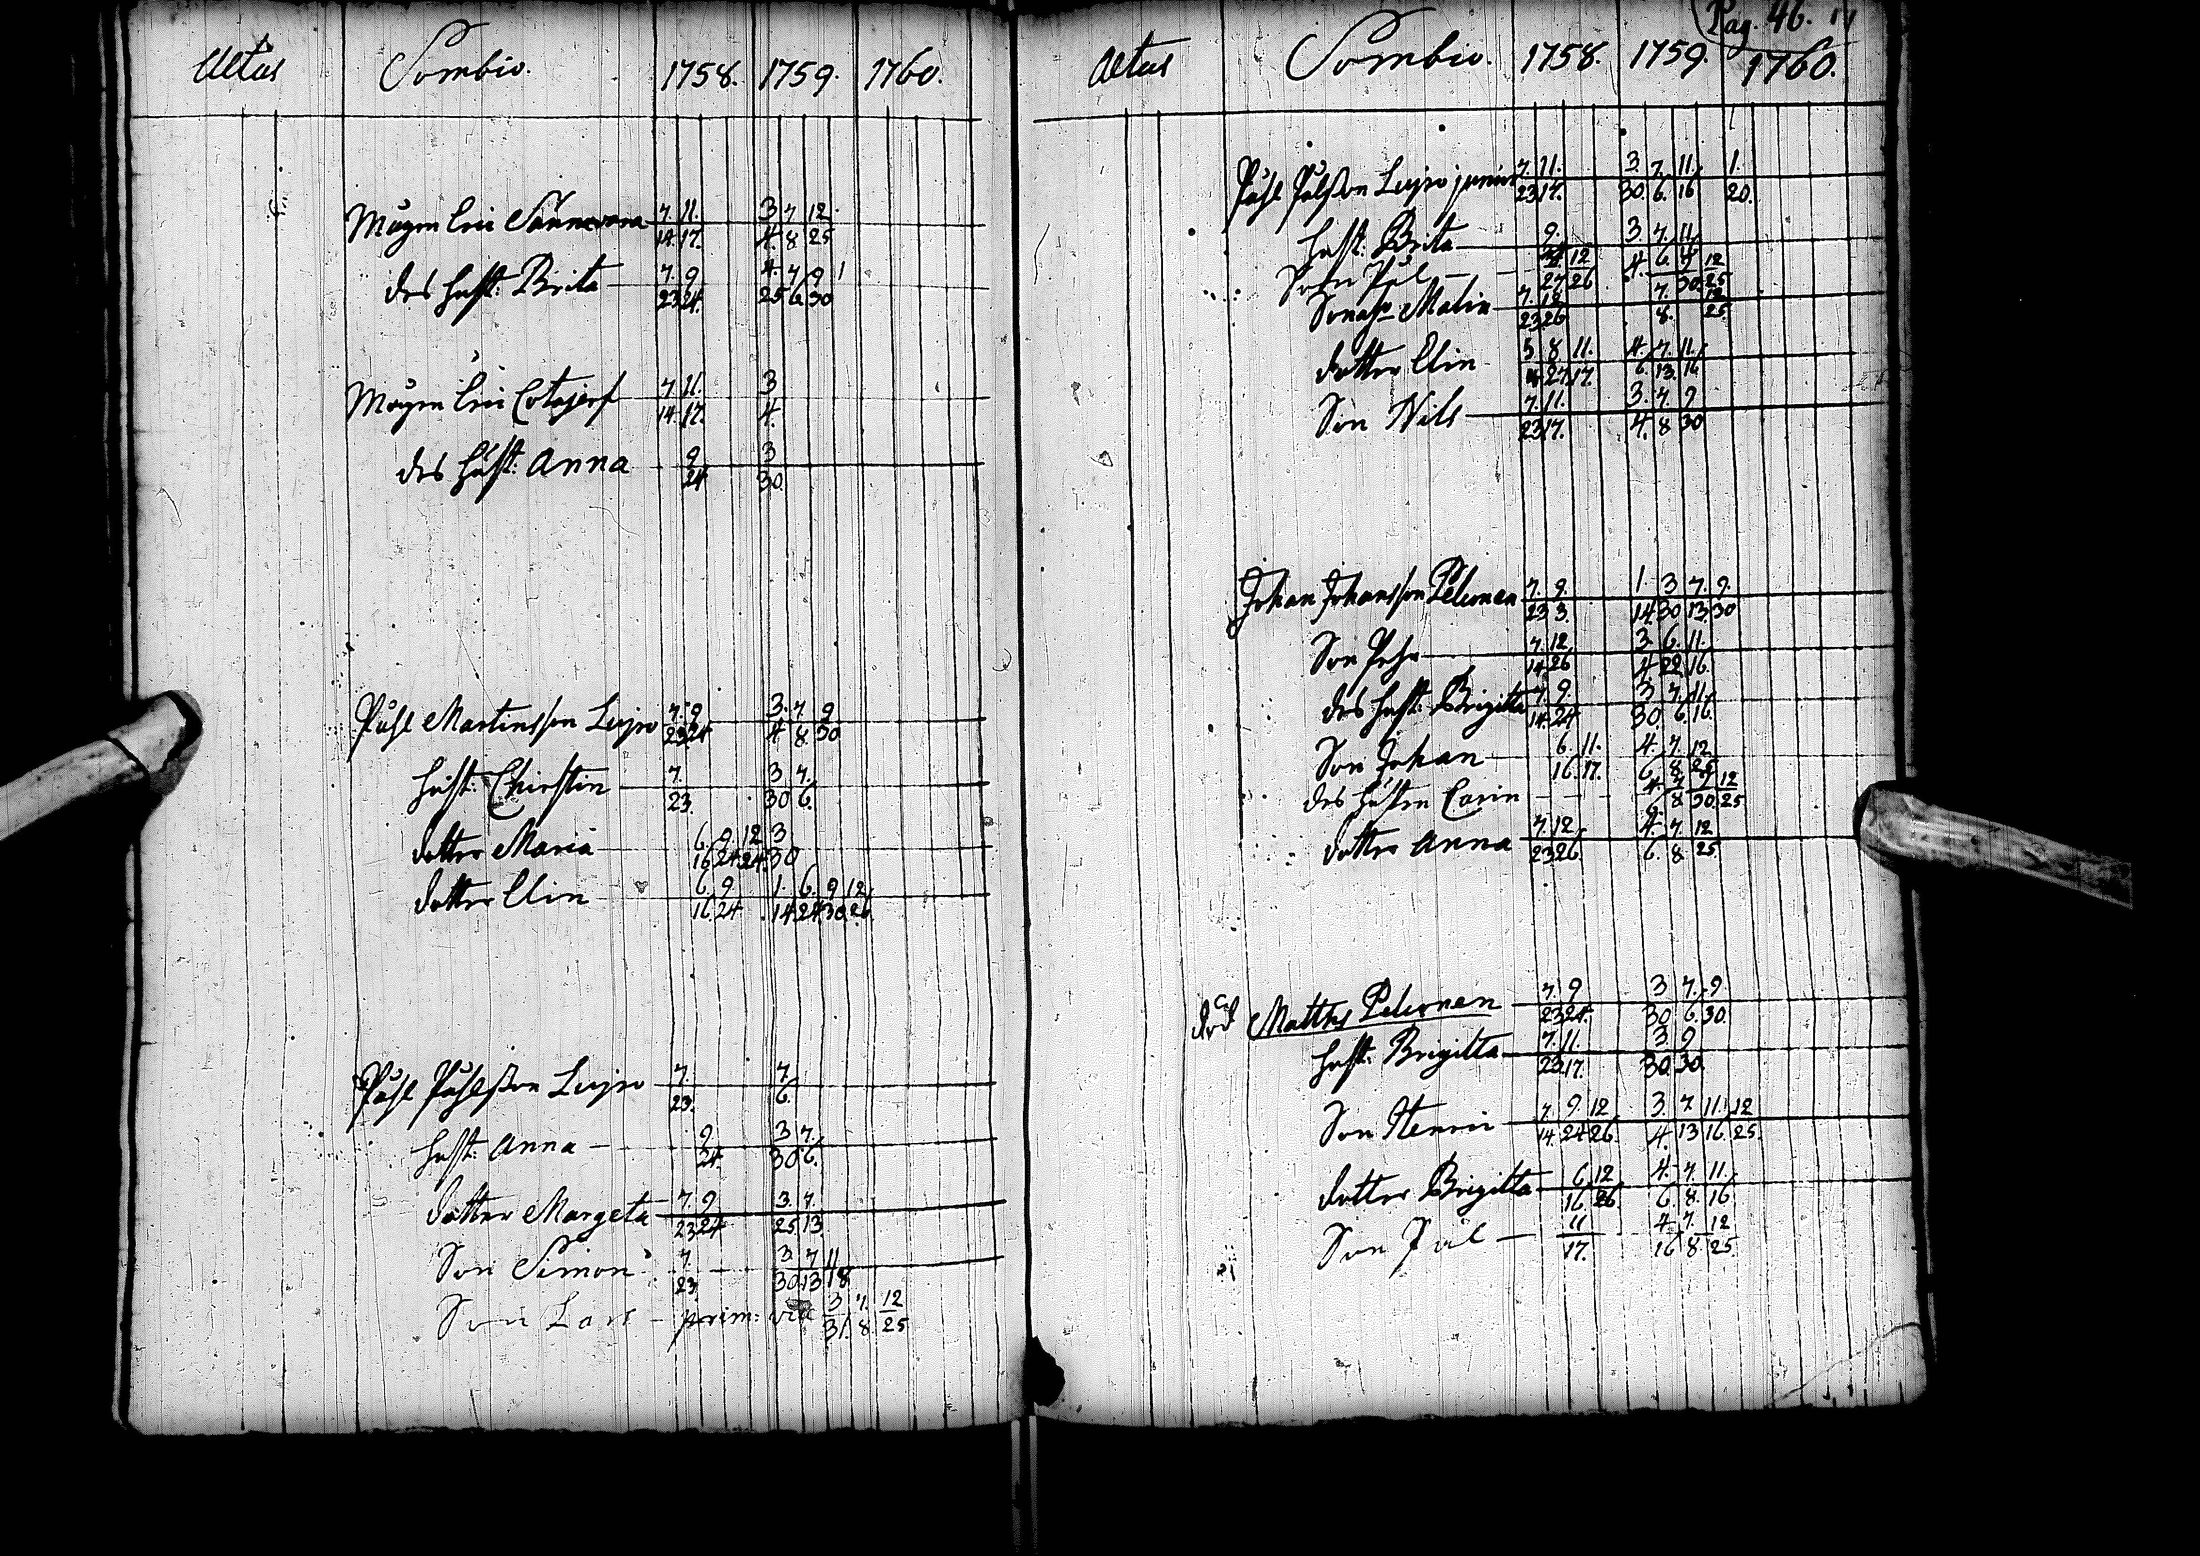 Aetas Sombio. 1758. 1759. 1760.
7. 11. 3 7 12
14. 17. 4. 8 25
des hust: Brita 7. 9 4. 7 9 1
23 24. 25 6 30
7. 11. 3
14. 17. 4.
des hust: Anna 9 3
24 30.
Påhl Martinsson Lujro 7. 9 3. 7. 9
23 24 4 8. 30
hust: Chirstin 7. 3 7.
23. 30 6.
dotter Maria 6. 9. 12 3
16 24 24. 30
dotter Elin 6. 9. 1. 6. 9 12
16 24 14 24 30 26
Påhl Påhlsson Lujro 7. 7.
23. 6.
hust: Anna 9. 3 7.
24. 30 6.
dotter Margeta 7. 9 3. 7.
23 24 25 13
Son Simon 7. 3. 7 11
23. 30 13 18
Son Lars prim: vice 3 7. 12
31. 8. 25
Pag. 46.
Aetas Sombio. 1758. 1759. 1760.
Påhl Pålsson Lujro junior 7. 11. 3 7. 11. 1.
23 17. 30. 6. 16 20.
hust: Brita 9. 3. 7. 11
24 6. 16
Son Pål 12 4. 9 12
27 26 30. 25
Malin 7. 12 7. 12
23 26 8. 25
dotter Elin 5 8. 11. 4. 7. 11.
27 17. 6. 13. 16
Son Nils 7. 11. 3. 7. 9
23 17. 4. 8 30
Johan Johansson Pelconen 7. 9. 1. 3 7. 9.
23 3. 14. 30 13. 30
Son Pehr 7. 12 3. 6. 11.
14. 26 4 22 16.
des hust: Brigitta 7. 9. 3 7. 11.
14. 24 30 6 16.
Son Johan 6. 11. 4. 7. 12
16. 17. 6. 8. 25
des hustru Carin 4. 7 9 12
6. 8 30. 25
dotter Anna 7. 12 4. 7. 12
23 26 6. 8 25
död Matths Pelconen 7. 9 3 7. 9
23 24. 30 6. 30.
hust: Brigitta 7. 11. 3 9
23. 17. 30. 30.
Son Henric 7. 9. 12 3. 7. 11. 12
14. 24 26 4. 13 16. 25.
dotter Brigitta 6 12 4. 7. 11.
16 26 6. 8. 16
Son Pål 11 4 7. 12
17. 16 8. 25